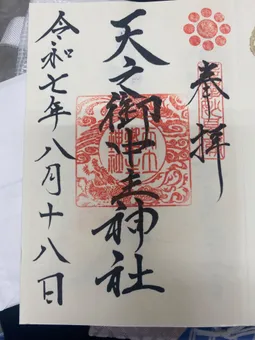 奉拝
天之御中主神社
令和七年八月十八日